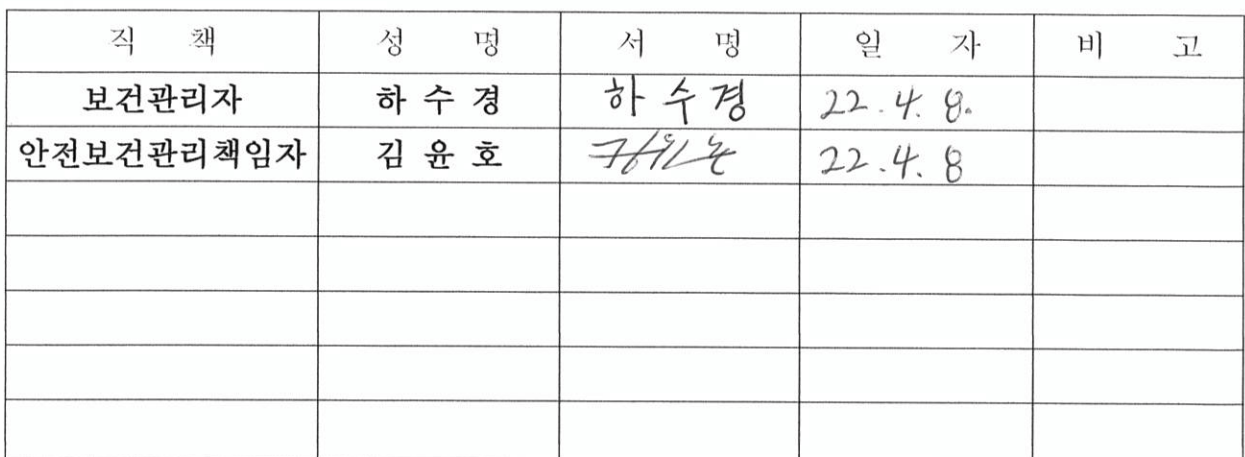 직 책 성 명 서 명 일 자 비 고
보건관리자 하 수 경 하 수 경 22. 4. 8.
안전보건관리책임자 김 윤 호 22. 4. 8